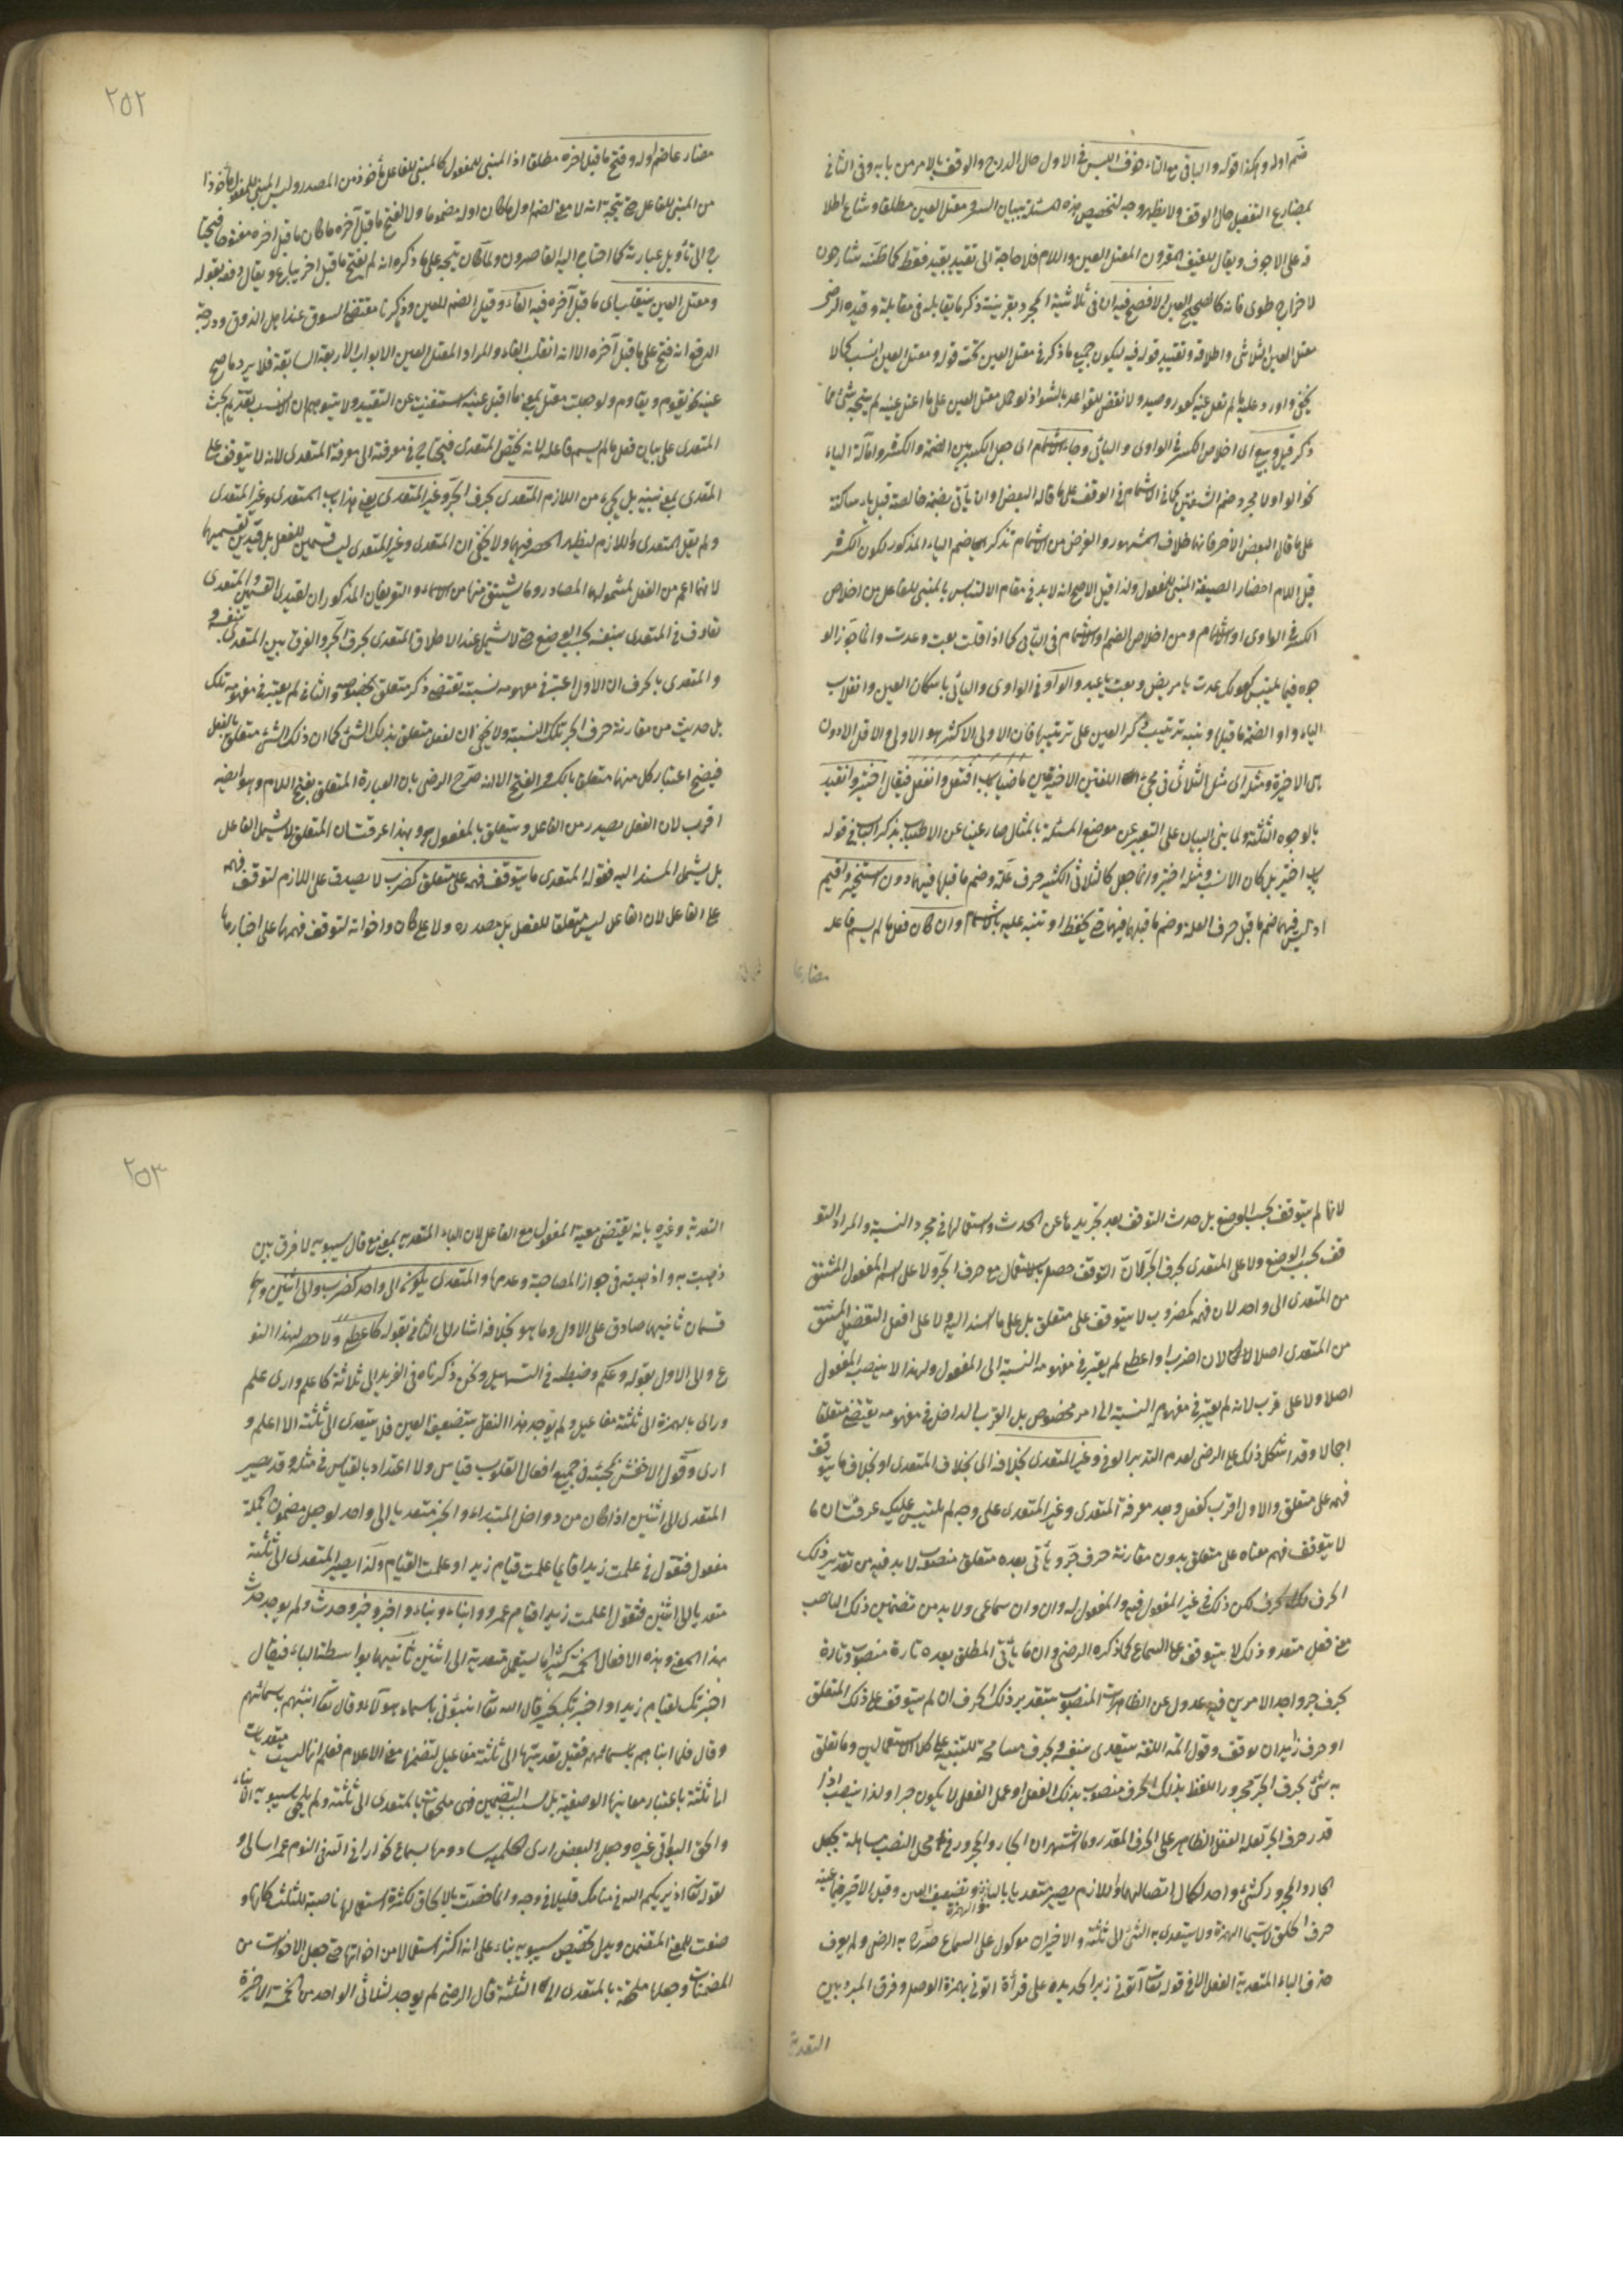 ضم اوله وهكذا قوله والباقي مع التاء خوف اللبس في الاول حال الدرج والوقف بالامر من بابه وفي الثاني
بمضارع التفعيل حال الوقف ولا يظهر وجه لتخصيص هذه المسئلة ببيان السر ومعتل العين مطلقا وشاع اطلا
قه على الاجوف ويقال للفيف المقرون المعتل العين واللام فلا حاجة الى تقييد بقيد فقط كما ظنه شارحون
لاخراج طوى فانه كالصحيح العين الافصح فيه ان في ثلاثية المجرد بقرينة ذكر ما يقابله في مقابلة وقيده الرضى
معتل العين الثلاثى واطلاقه وتقييد قوله فيه ليكون جميع ما ذكر في معتل العين تحت قوله ومعتل العين انسب كما لا
يخفى واورد عليه ما لم تعل عينه كعور وصيد ولا نقض للقواعد بالشواذ لو حمل معتل العين على ما اعتل عينه لم يتجه شئ مما
ذكر قيل وبيع اى اخلاص الكسر في الواوى واليائى وجاء الاشمام اى جعل الكسر بين الضمة والكسرة وامالة الياء
نحو الواو لا مجرد ضم الشفتين كما في الاشمام في الوقف على ما قاله البعض او ان يأتى بضمة خالصة قبل ياء ساكنة
على ما قال البعض الاخر فانهما خلاف المشهور والغرض من الاشمام تذكر ضم الياء المذكور لكون الكسر
قبل اللام احضار الصيغة المبنى للمفعول ولذا قيل الاصح انه لا بد في مقام الالتباس بالمبنى للفاعل من اخلاص
الكسر في الواوى او الاشمام ومن اخلاص الضم او الاشمام في اليائى كما اذا قلت بعت وعدت وانما جوز الو
جوه فيما يلتبس كقولك عدت يا مريض وبعت يا عبد والواو في الواوى واليائى باسكان العين وانقلاب
الياء واوا لضمة ما قبلها ونبه بترتيب ذكر العين على ترتيبها فان الاولى الاكثر هو الاولى والاقل الادون
هى الاخيرة ومثله اى مثل الثلاثى في مجئ اللغتين الاخيرتين ماضيا باب افتعل وانفعل فيقال اختير وانقيد
بالوجوه الثلثة ولما بنى البيان على التعبير عن موضع المسئلة بالمثال صار غنيا عن الاطناب بذكر الباب في قوله
باب اختير بل كان الانسب ومثله اختير وانما جعل كالثلاثى لكثير حرف علة وضم ما قبلها فيهما دون استخير واقيم
اذ ليس فيهما ضم ما قبل حرف العلة وضم ما قبلها فيهما حتى يحفظ او تنبه عليه بالاشمام وان كان فعل ما لم يسم فاعله
مضارعا
٢٥٢
مضارعا ضم اوله وفتح ما قبل اخره مطلقا اذ المبنى للمفعول كالمبنى للفاعل مأخوذ من المصدر وليس المبنى للمفعول مأخوذا
من المبنى للفاعل حتى يتجه انه لا معنى لضم اول ما كان اوله مضموما ولا لفتح ما قبل آخره ما كان ما قبل اخره مفتوحا فيحتا
ج الى تأويل عبارته كما احتاج اليه القاصرون ولما كان يتجه على ما ذكره انه لم يفتح ما قبل اخر يباع ويقال دفعه بقوله
ومعتل العين ينقلب اى ما قبل آخره فيه الفاء وقيل الضم للعين وذكر نا مقتضى السوق عند اهل الذوق ووجه
الدفع انه فتح على ما قبل آخره الا انه انقلب الفاء والمراد المعتل العين الابواب الاربعة السابقة فلا يرد ما صح
عينه نحو يقوم ويقاوم ولو جعلت معتل بمعنى ما اقبل عينه استغنيت عن التقييد ولا يتوهم ان الانسب تقديم بحث
المتعدى على بيان فعل ما لم يسم فاعله لانه يختص المتعدى فيحتاج في معرفته الى معرفة المتعدى لانه لا يتوقف على
المتعدى بمعنييه بل يجئ من اللازم المتعدى بحرف الجر وغير المتعدى يعنى هذا باب المتعدى وغير المتعدى
ولم يقل المتعدى واللازم ليظهر الحصر فيهما ولا يخفى ان المتعدى وغير المتعدى ليسا قسمين للفعل بل قيدين تقسيمهما
لانهما اعم من الفعل لشمولهما المصادر وما يشتق منها من الاسماء والتعريفان المذكوران لقيدى القسمين والمتعدى
تعارف في المتعدى بنفسه بحسب الوضع حتى لا يشمل عند الاطلاق المتعدى بحرف الجر والفرق بين المتعدى بنفسه
والمتعدى بالحرف ان الاول اعتبر في مفهومه نسبة تقتضى ذكر متعلق بخصوصه والثانى لم يعتبر في مفهومه تلك
بل حديث من مقارنة حرف الجر تلك النسبة ولا يخفى ان الفعل متعلق بذلك الشئ كما ان ذلك الشئ متعلق بالفعل
فيصح اعتبار كل منهما متعلق بالكسر والفتح الا انه صرح الرضى بان العبارة المتعلق بفتح اللام وهو ايضه
اقرب لان الفعل يصدر من الفاعل ويتعلق بالمفعول به وبهذا عرفت ان المتعلق لا يشمل الفاعل
بل يشمل المسند اليه فقوله المتعدى ما يتوقف فهمه على متعلق كضرب لا يصدق على اللازم لتوقف فهمه
على الفاعل لان الفاعل ليس متعلقا للفعل بل مصدره ولا على كان واخواته لتوقف فهمها على اخبارها
لانها لم يتوقف بحسب الوضع بل حدث التوقف بعد تجريدها عن الحدث واستعمالها في مجرد النسبة والمراد التو
قف بحسب الوضع ولا على المتعدى بحرف الجر لان التوقف حصل بالاستعمال مع حرف الجر ولا على اسم المفعول المشتق
من المتعدى الى واحد لان فهم كمضروب لا يتوقف على متعلق بل على ما اسند اليه ولا على افعل التفضيل المشتق
من المتعدى اصلا لان اضرب او اعطى لم يعتبر في مفهومه النسبة الى المفعول ولهذا لا ينصب المفعول
اصلا ولا على قرب لانه لم يعتبر في مفهومه النسبة الى امر مخصوص بل القرب الداخل في مفهومه يقتضى متعلقا
اجمالا وقد اشكل ذلك على الرضى لعدم التدبر الوفى وغير المتعدى بخلافه اى بخلاف المتعدى او بخلاف ما يتوقف
فهمه على متعلق والاول اقرب كفعل وبعد معرفة المتعدى وغير المتعدى على وجه لم يلتبس عليك عرفت ان ما
لا يتوقف فهم معناه على متعلق بدون مقارنة حرف جر ويأتى بعده متعلق منصوب لا بد فيه من تقدير ذلك
الحرف لكن ذلك في غير المفعول فيه والمفعول له وان وان سماعى ولا بد من تضمين ذلك الناصب
معنى فعل متعد وذلك لا يتوقف على السماع كما ذكره الرضى وان ما يأتى المطلق بعده تارة منصوب وتارة
بحرف جر واحد الامرين فيه عدول عن الظاهر المنصوب بتقدير ذلك الحرف ان لم يتوقف على ذلك المتعلق
او حرف زائد ان توقف وقول ائمة اللغة يتعدى بنفسه وبحرف مسامحة للتنبيه على كلا الاستعمالين وما تعلق
به شئ بحرف الجر مجرور اللفظ بذلك الحرف منصوب بذلك الفعل او عمل الفعل لا يكون جرا ولذا ينصب اذا
قدر حرف الجر لعمله الفعل الظاهر على الحرف المقدر وما اشتهر ان الجار والمجرور في محل النصب مساهلة بجعل
الجار والمجرور كشئ واحد لكمال اتصالهما واللازم يصير متعديا بالباء والهمزة وتضعيف العين وقيل الاخير فيما عينه
حرف الحلق لا سيما الهمزة ولا يتعدى به الشئ الى ثلثة والاخيران موكول على السماع صرح به الرضى ولم يعرف
حذف الباء المتعدية الفعل الا في قوله تعالى آتونى زبر الحديد على قرأة اتونى بهمزة الوصل وفرق المبرد بين
التعدية
٢٥٣
التعدية وغيره بانه يقتضى معية المفعول مع الفاعل لان الباء المتعدية بمعنى مع قال سيبويه لا فرق بين
ذهبت به واذهبته في جواز المصاحبة وعدمها والمتعدى يكون الى واحد كضرب والى اثنين وهما
قسمان ثانيهما صادق على الاول وما هو بخلافه اشار الى الثانى بقوله كاعطى ولا حصر لهذا النو
ع والى الاول بقوله وعلم وضبطه في التسهيل ونحن ذكرناه في الفريد الى ثلاثة كاعلم وارى علم
ورأى بالهمزة الى ثلثة مفاعيل ولم يوجد هذا النقل بتضعيف العين فلا يتعدى الى ثلثة الا اعلم و
ارى وقول الاخفش بمجيئه في جميع افعال القلوب قياس ولا اعتداد بالقياس في مثله وقد يصير
المتعدى الى اثنين اذا كان من دواخل المبتداء والخبر متعديا الى واحد لو جعل مضمون الجملة
مفعول فتقول في علمت زيدا قايما علمت قيام زيد او علمت القيام ولذا يصير المتعدى الى ثلثة
متعديا الى اثنين فتقول اعلمت زيدا قيام عمرو وانباء ونباء واخبر وخبر وحدث ولم يوجد حدث
هذا المعنى وهذه الافعال الخمسة كثيرا ما يستعمل متعدية الى اثنين ثانيهما بواسطة الباء فيقال
اخبرتك بقيام زيد او اخبرتك بخبر قال الله تعا انبئونى باسماء هؤلاء وقال تعا انبئهم باسمائهم
وقال فلما انباهم باسمائهم فقيل تعديتها الى ثلثة مفاعيل لتضمنها معنى الاعلام فعلم انها ليست متعديات
الى ثلثة باعتبار معانيها الوضعية بل بسبب التضمين فهى ملحقة بالمتعدى الى ثلثة ولم يلحق سيبويه الا نباء
والحق البواقى غيره وجعل البعض ارى الحلمية سادسها بسماع نحو ارانى في النوم عمرا سالما و
لقوله تعا اذ يريكهم الله في منامك قليلا في وجه وانما خصت بالالحاق لكثرة استعمالها ناصبة للثلث كانها
ضوعت للمعنى المتضمن ويدل تخصيص سيبويه بناء على انه اكثر استعمالا من اخواتها حتى جعل الاخوات من
المضمنات وجعلها ملحقة بالمتعدى الى الثلثة قال الرضى لم يوجد لثلاثى الواحد من الخمسة الاخيرة